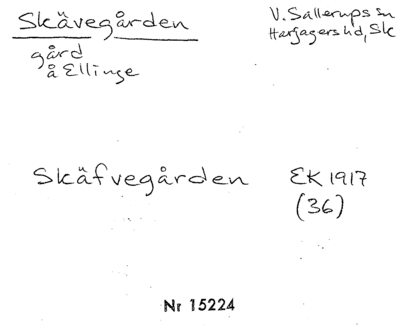 Skävegården
gård
å Ellinge
V. Sallerups sn
Harjagers hd, Sk
Skäfvegården
EK 1917
(36)
Nr 15224